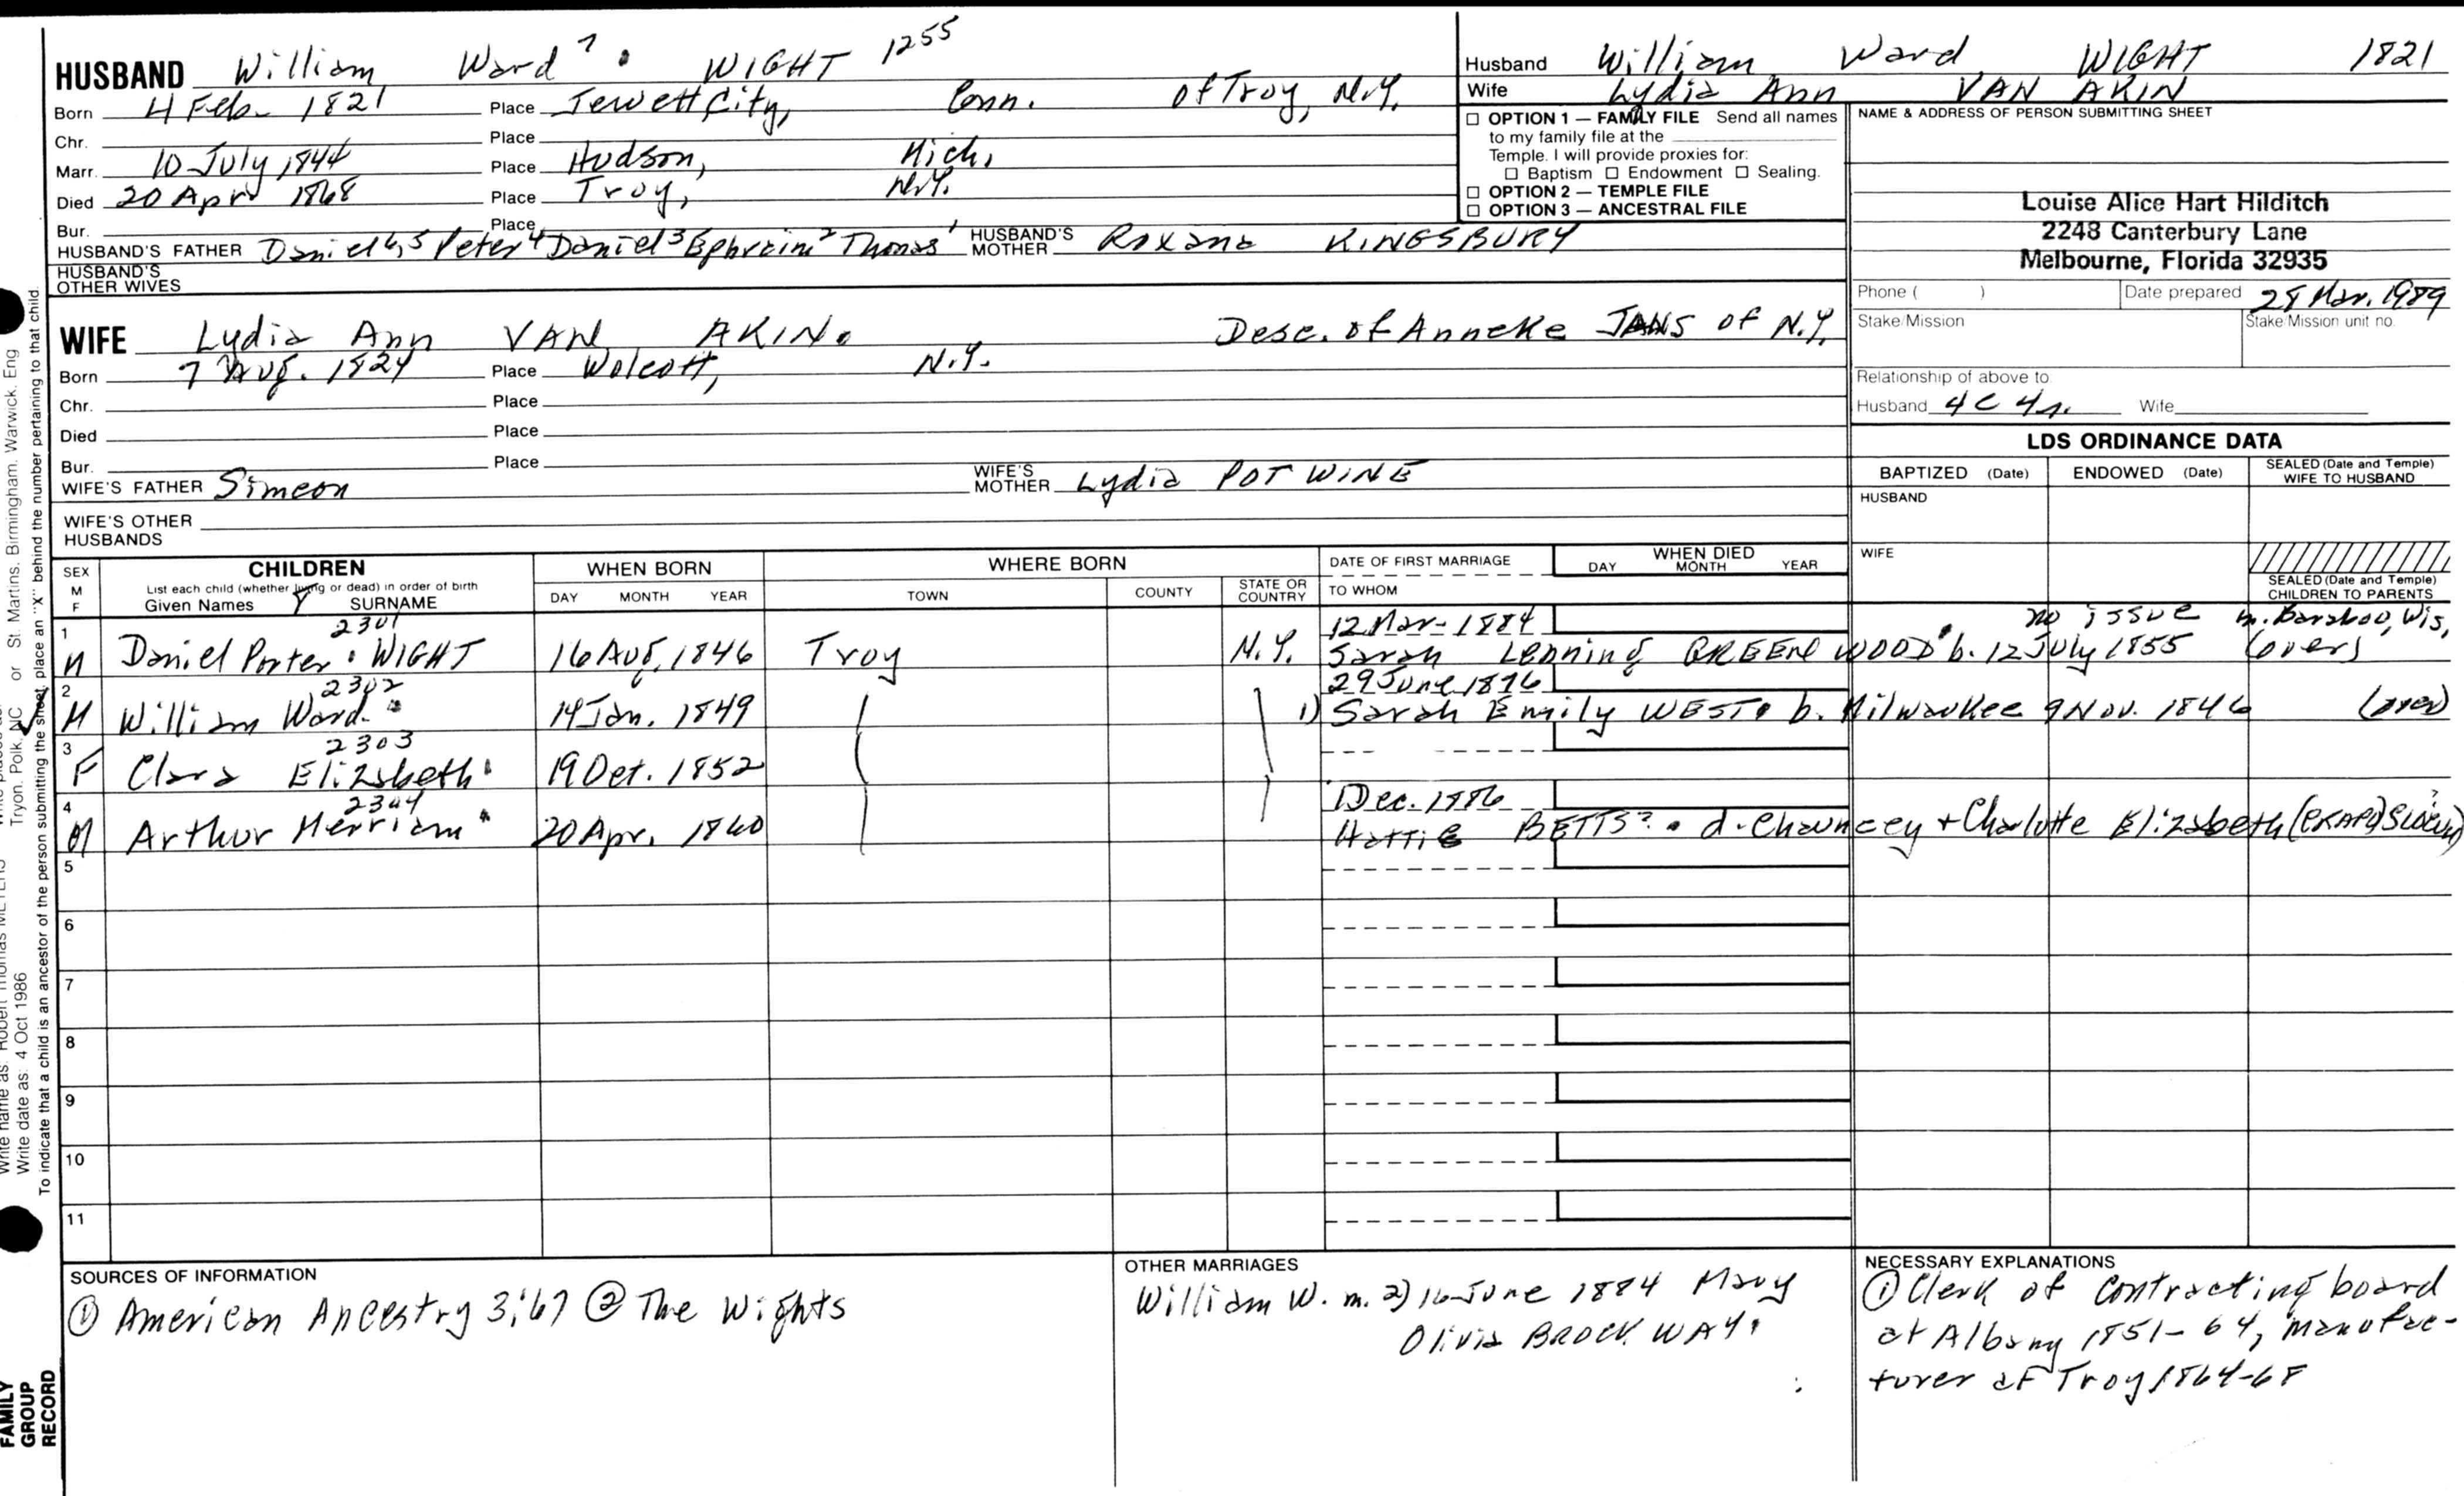 HUSBAND William Ward 7 . WIGHT 1255
Born 4 Feb. 1821 Place Jewett City, Conn. of Troy, N.Y.
Chr. Place
Marr. 10 July 1844 Place Hudson, Mich.
Died 20 Apr 1868 Place Troy, N.Y.
Bur. Place
HUSBAND'S FATHER Daniel 6,5 Peter 4 Daniel 3 Ephraim 2 Thomas 1 HUSBAND'S MOTHER Roxana KINGSBURY
HUSBAND'S OTHER WIVES
Husband William Ward WIGHT 1821
Wife Lydia Ann VAN AKIN
☐ OPTION 1 — FAMILY FILE Send all names
to my family file at the
Temple. I will provide proxies for:
☐ Baptism ☐ Endowment ☐ Sealing.
☐ OPTION 2 — TEMPLE FILE
☐ OPTION 3 — ANCESTRAL FILE
NAME & ADDRESS OF PERSON SUBMITTING SHEET
Louise Alice Hart Hilditch
2248 Canterbury Lane
Melbourne, Florida 32935
Phone ( ) Date prepared 28 Mar. 1989
Stake/Mission Stake/Mission unit no.
Relationship of above to
Husband 4C 4r. Wife
WIFE Lydia Ann VAN AKIN. Desc. of Anneke JANS of N.Y.
Born 7 Aug. 1824 Place Wolcott, N.Y.
Chr. Place
Died Place
Bur. Place
WIFE'S FATHER Simeon WIFE'S MOTHER Lydia POTWINE
WIFE'S OTHER HUSBANDS
LDS ORDINANCE DATA
BAPTIZED (Date) ENDOWED (Date) SEALED (Date and Temple) WIFE TO HUSBAND
HUSBAND
WIFE
SEALED (Date and Temple) CHILDREN TO PARENTS
SEX M F CHILDREN WHEN BORN WHERE BORN DATE OF FIRST MARRIAGE WHEN DIED
List each child (whether living or dead) in order of birth
Given Names SURNAME DAY MONTH YEAR TOWN COUNTY STATE OR COUNTRY TO WHOM DAY MONTH YEAR
2301 12 Mar. 1884 no issue m. Baraboo, Wis,
1 M Daniel Porter . WIGHT 16 Aug. 1846 Troy N.Y. Sarah Leaning GREENWOOD b. 12 July 1855 (over)
2302 29 June 1876
2 M William Ward. 14 Jan. 1849 1) Sarah Emily WEST. b. Milwaukee 9 Nov. 1846 (over)
2303
3 F Clara Elizabeth 19 Oct. 1852
2304 1 Dec. 1886
4 M Arthur Merriam 20 Apr. 1860 Hattie BETTS? . d. Chauncey + Charlotte Elizabeth
5
6
7
8
9
10
11
SOURCES OF INFORMATION
① American Ancestry 3:67 ② The Wights
OTHER MARRIAGES
William W. m. 2) 16 June 1884 Mary
Olivia BROCKWAY.
NECESSARY EXPLANATIONS
① Clerk of contracting board
at Albany 1851-64, manufac-
turer at Troy 1864-68
St. Martins, Birmingham, Warwick, Eng
Tryon, Polk, NC or
Write name as: Robert Thomas MEYERS
Write date as: 4 Oct 1986
To indicate that a child is an ancestor of the person submitting the sheet, place an "X" behind the number pertaining to that child.
FAMILY
GROUP
RECORD